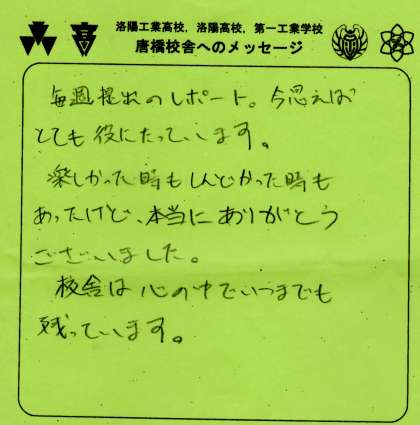 洛陽工業高校，洛陽高校，第一工業学校
唐橋校舎へのメッセージ
高
毎週提出のレポート。今思えば
とても役にたっています。
楽しかった時もしんどかった時も
あったけど、本当にありがとう
ございました。
校舎は心の中でいつまでも
残っています。